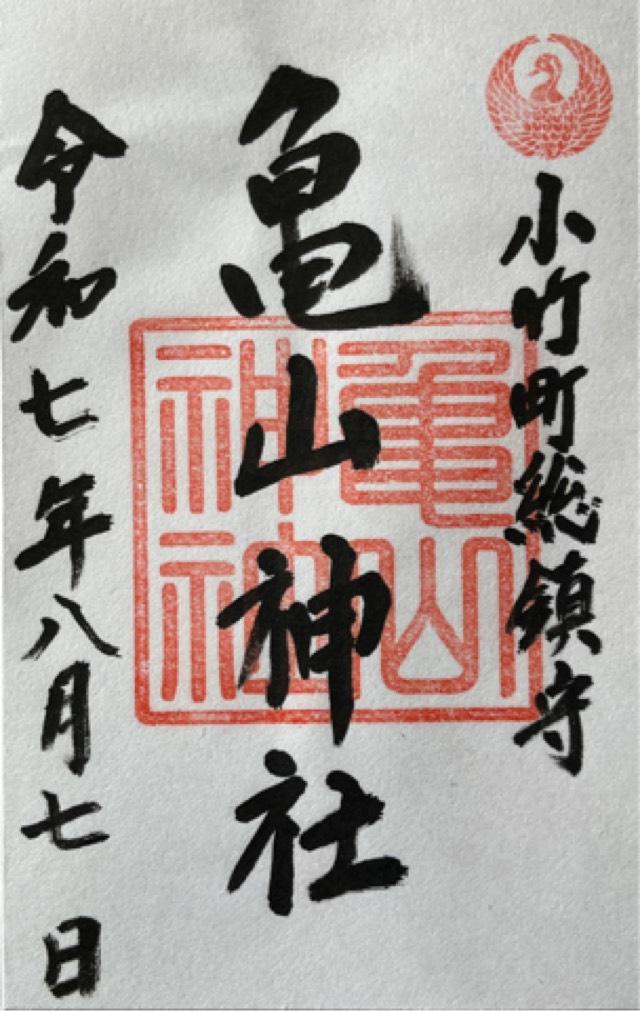 小竹町総鎮守
亀山神社
令和七年八月七日
龜山
神社